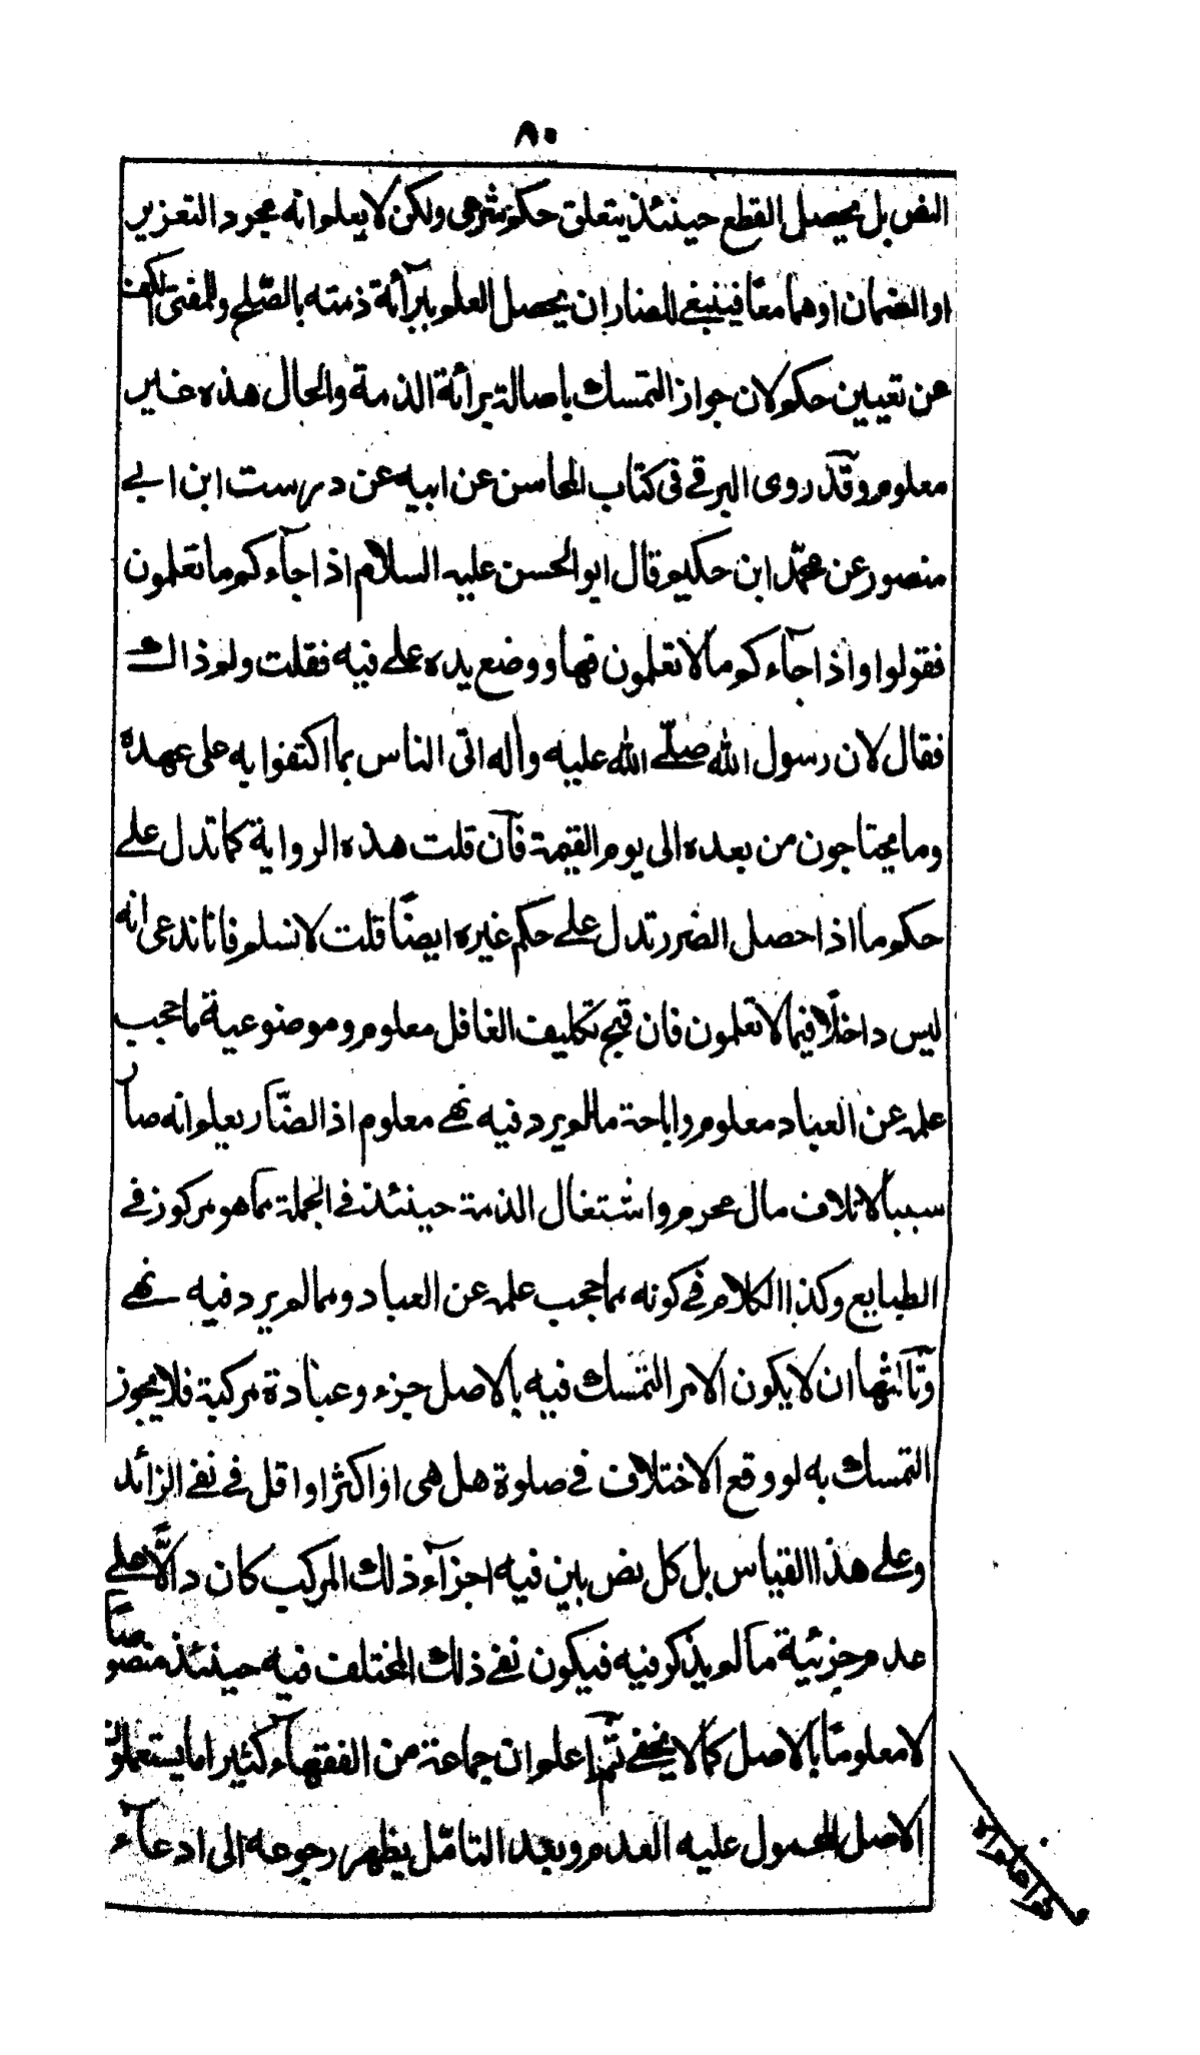 ٨٠
النص بل يحصل القطع حينئذ يتعلق حكم شرعى ولكن لا يعلم انه مجرد التعزير
او الضمان او هما معًا فينبغى للضار ان يحصل العلم ببرآئة ذمته بالصّلح وللمفتى الكف
عن تعيين حكم لان جواز التمسك باصالة برائة الذمة والحال هذه غير
معلوم وقد روى البرقى فى كتاب المحاسن عن ابيه عن درست ابن ابى
منصور عن محمّد ابن حكيم قال ابو الحسن عليه السلام اذا جآءكم ما تعلمون
فقولوا واذا جآءكم ما لا تعلمون فها ووضع يده على فيه فقلت ولم ذاك
فقال لان رسول الله صلّى الله عليه واله اتى الناس بما اكتفوا به على عهده
وما يحتاجون من بعده الى يوم القيمة فان قلت هذه الرواية كما تدل على
حكم ما اذا حصل الضرر تدل على حكم غيره ايضًا قلت لا نسلم فانا ندعى انه
ليس داخلًا فيما لا تعلمون فان قبح تكليف الغافل معلوم وموضوعية ما حجب
علمه عن العباد معلوم واباحة ما لم يرد فيه نهى معلوم اذ الضّار يعلم انه صار
سببا لاتلاف مال محرم واشتغال الذمة حينئذ فى الجملة مما هو مركوز فى
الطبايع وكذا الكلام فى كونه مما حجب علمه عن العباد ومما لم يرد فيه نهى
وثالثها ان لا يكون الامر التمسك فيه بالاصل جزء وعبادة مركبة فلا يجوز
التمسك به لو وقع الاختلاف فى صلوة هل هى او اكثر او اقل فى نفى الزائد
وعلى هذا القياس بل كل نص بين فيه اجزآء ذلك المركب كان دالًّا على
عدم جزئية ما لم يذكر فيه فيكون نفى ذلك المختلف فيه حينئذ منصوصًا
لا معلومًا بالاصل كما لا يخفى ثم اعلم ان جماعة من الفقهآء كثيرا ما يستعملون
الاصل المحمول عليه العدم وبعد التامّل يظهر رجوعه الى ادعآء